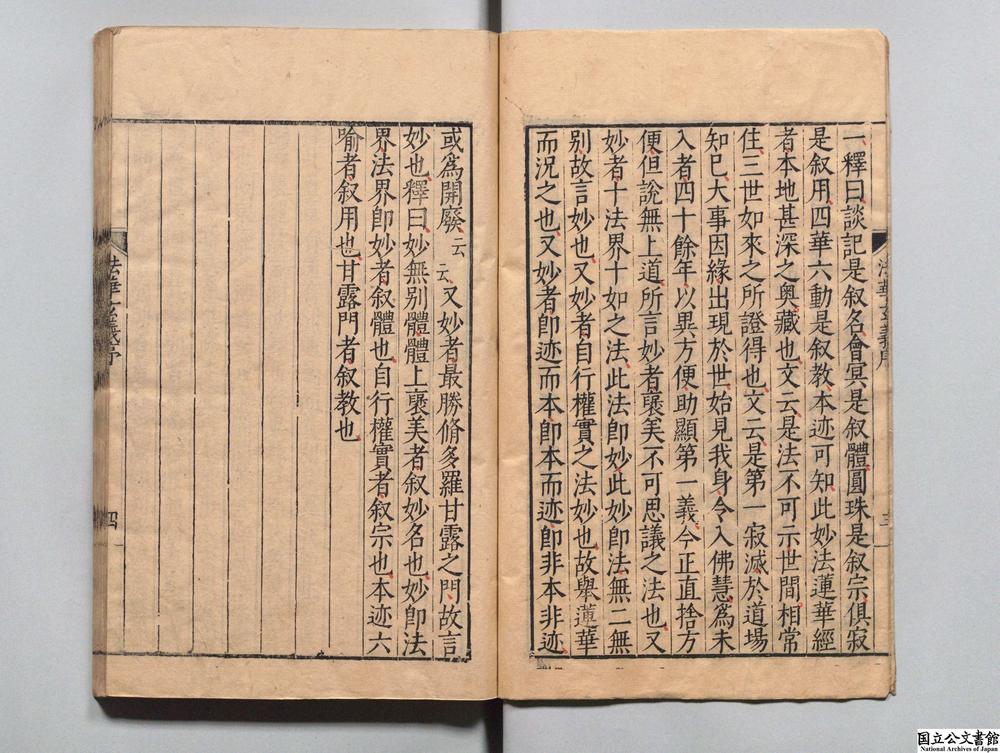 一釋曰談記是叙名會冥是叙體圓珠是叙宗俱寂
是叙用四華六動是叙教本迹可知此妙法蓮華經
者本地甚深之奧藏也文云是法不可示世間相常
住三世如來之所證得也文云是第一寂滅於道場
知已大事因緣出現於世始見我身令入佛慧爲未
入者四十餘年以異方便助顯第一義今正直捨方
便但說無上道所言妙者褒美不可思議之法也又
妙者十法界十如之法此法即妙此妙即法無二無
別故言妙也又妙者自行權實之法妙也故舉蓮華
而況之也又妙者即迹而本即本而迹即非本非迹
法華玄義序
三
或爲開廢云云又妙者最勝脩多羅甘露之門故言
妙也釋曰妙無別體體上褒美者叙妙名也妙即法
界法界即妙者叙體也自行權實者叙宗也本迹六
喻者叙用也甘露門者叙教也
法華玄義序
四
国立公文書館
National Archives of Japan